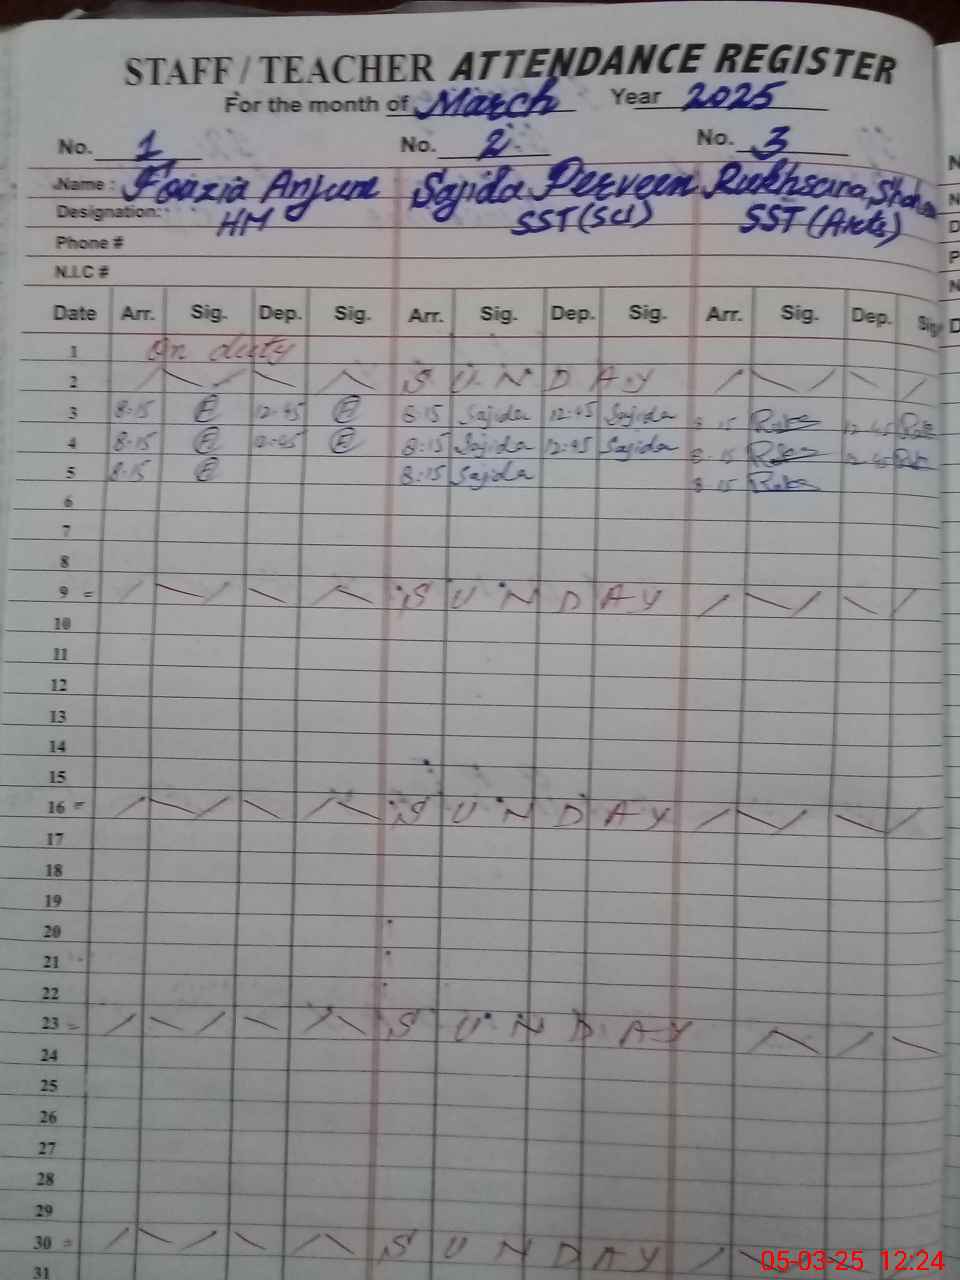 STAFF / TEACHER ATTENDANCE REGISTER
For the month of March Year 2025
No. 1 No. 2 No. 3
Name : Fouzia Anjum Sajida Perveen Rukhsana
Designation: HM SST(Sci) SST (Arts)
Phone #
N.I.C #
Date Arr. Sig. Dep. Sig. Arr. Sig. Dep. Sig. Arr. Sig. Dep. Sig
1 On duty
2 SUNDAY
3 8:15 12:45 8:15 Sajida 12:45 Sajida 8:15 12:45
4 8:15 12:45 8:15 Sajida 12:45 Sajida 8:15 12:45
5 8:15 8:15 Sajida 8:15
6
7
8
9 = SUNDAY
10
11
12
13
14
15
16 = SUNDAY
17
18
19
20
21
22
23 = SUNDAY
24
25
26
27
28
29
30 = SUNDAY
31
05-03-25 12:24